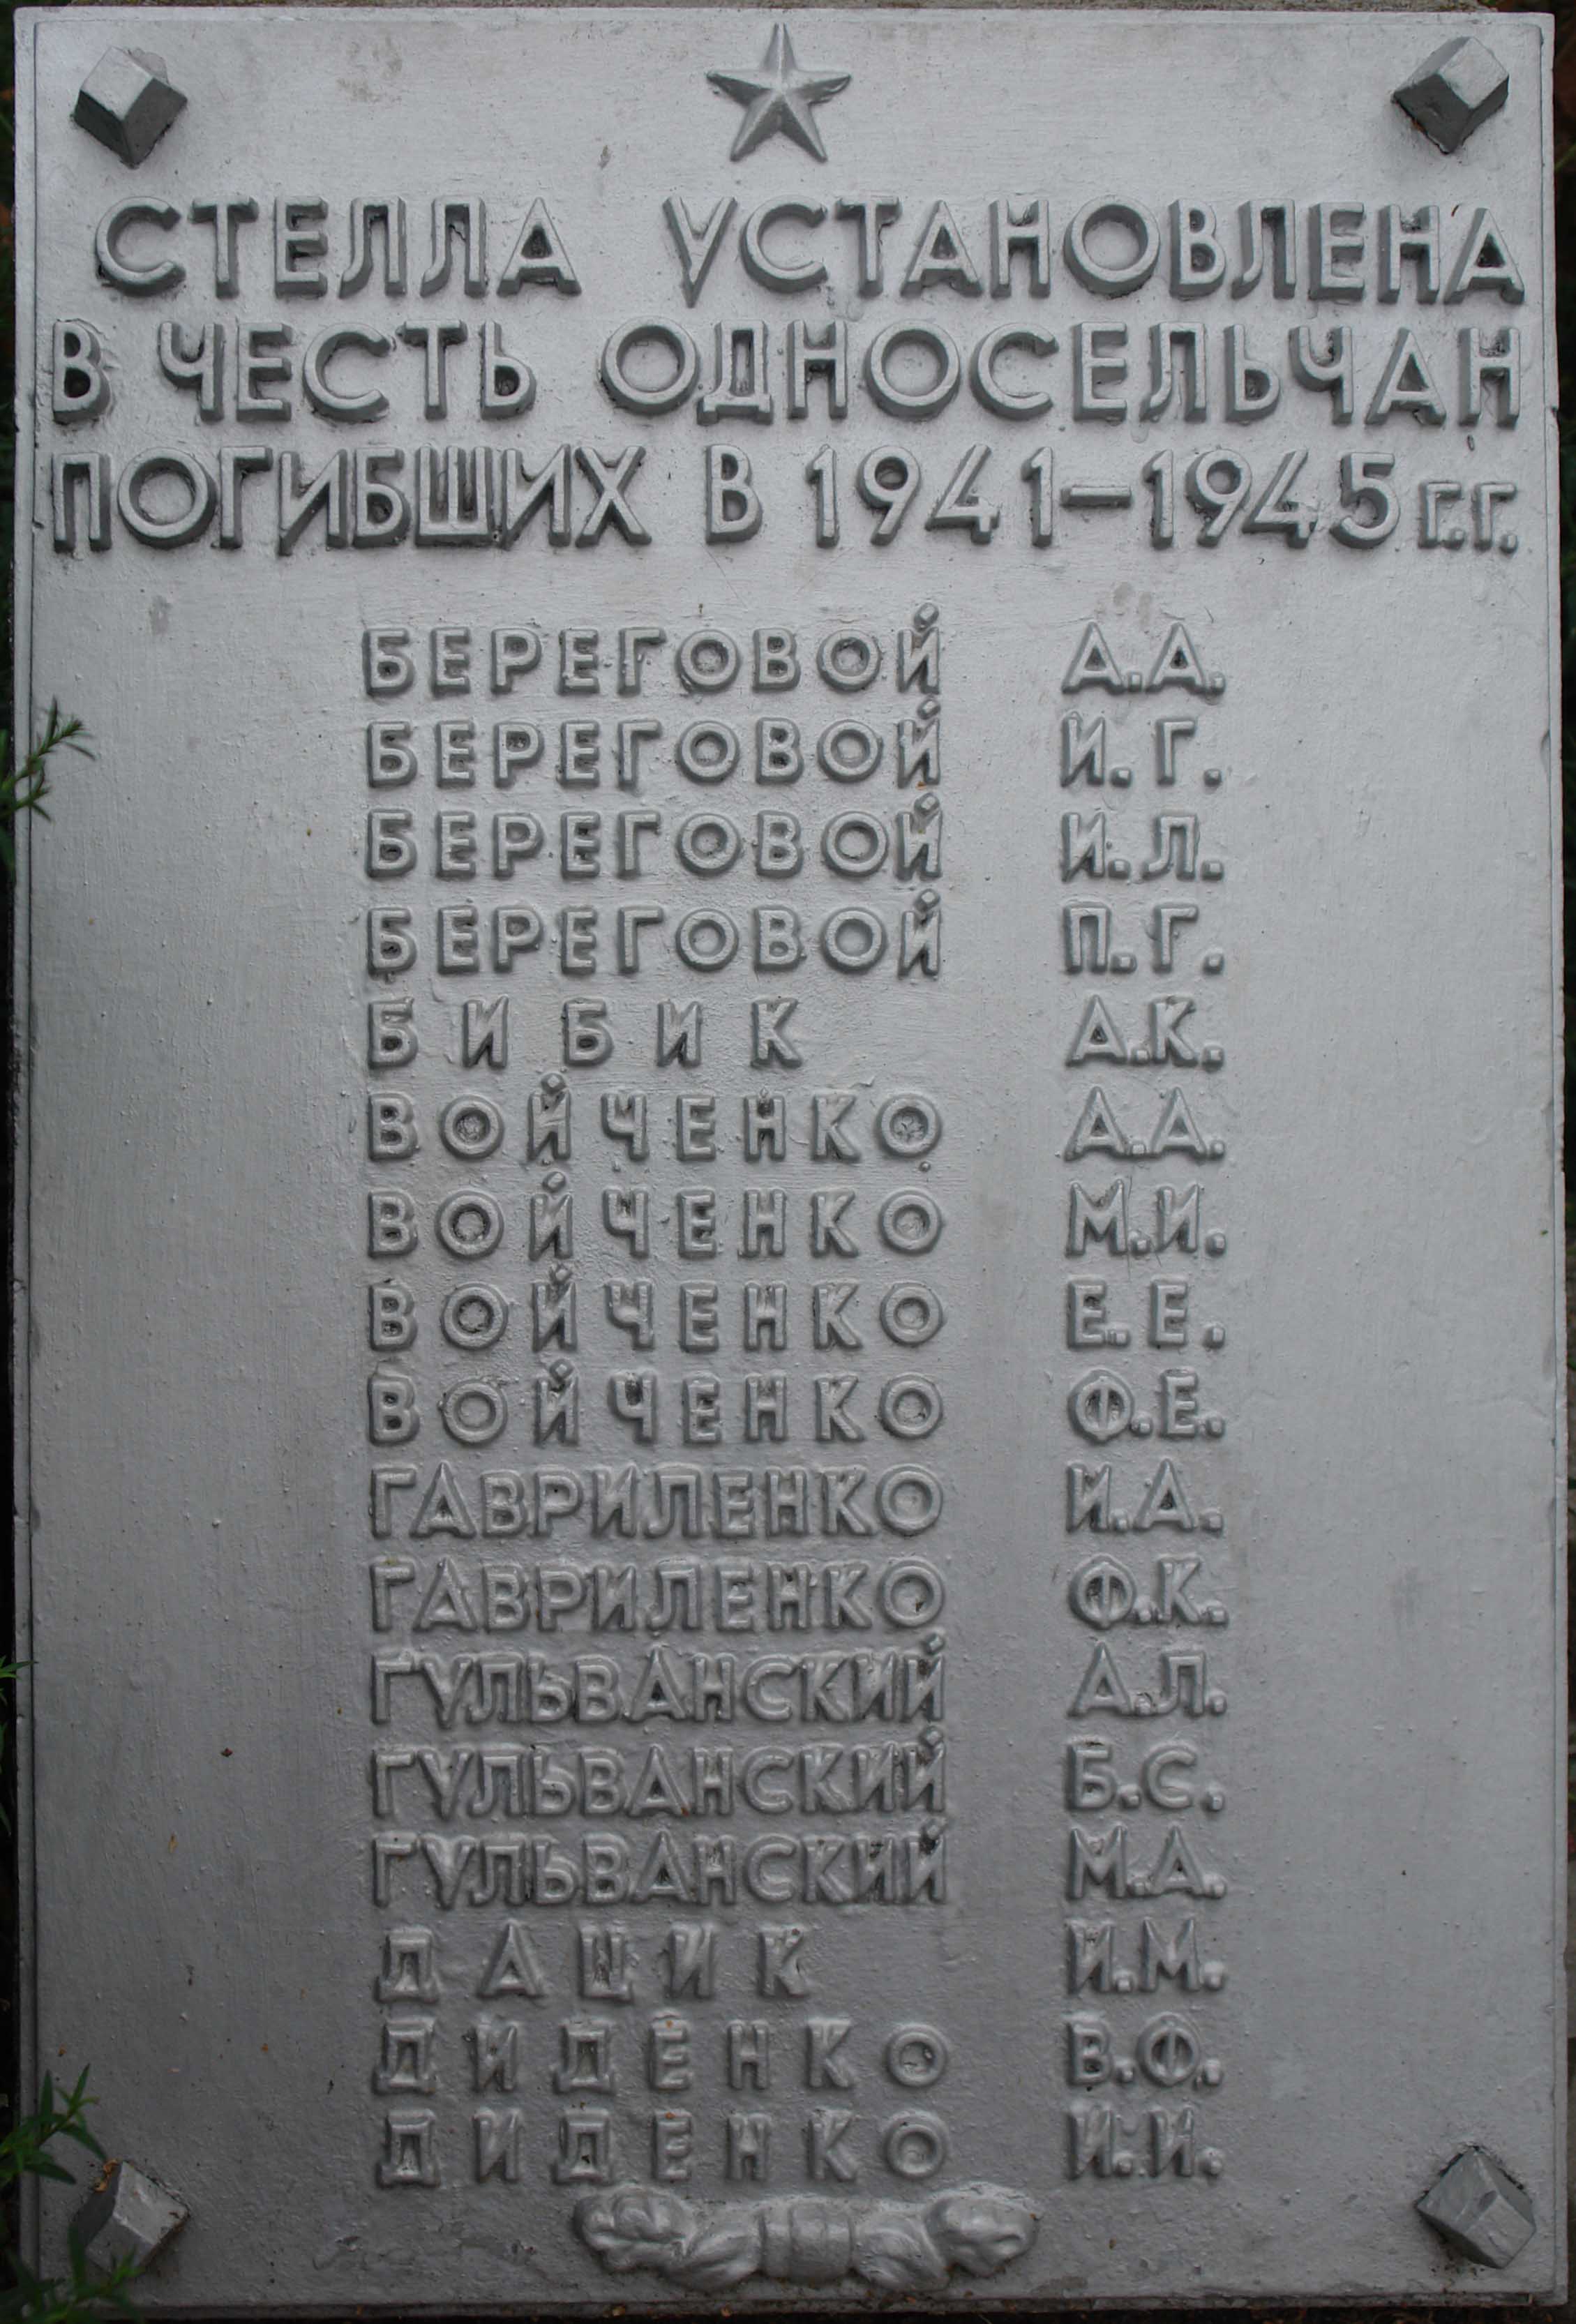 СТЕЛЛА УСТАНОВЛЕНА
В ЧЕСТЬ ОДНОСЕЛЬЧАН
ПОГИБШИХ В 1941–1945 г.г.
БЕРЕГОВОЙ А.А.
БЕРЕГОВОЙ И.Г.
БЕРЕГОВОЙ И.Л.
БЕРЕГОВОЙ П.Г.
БИБИК А.К.
ВОЙЧЕНКО А.А.
ВОЙЧЕНКО М.И.
ВОЙЧЕНКО Е.Е.
ВОЙЧЕНКО Ф.Е.
ГАВРИЛЕНКО И.А.
ГАВРИЛЕНКО Ф.К.
ГУЛЬВАНСКИЙ А.Л.
ГУЛЬВАНСКИЙ Б.С.
ГУЛЬВАНСКИЙ М.А.
ДАЦИК И.М.
ДИДЕНКО В.Ф.
ДИДЕНКО И.И.